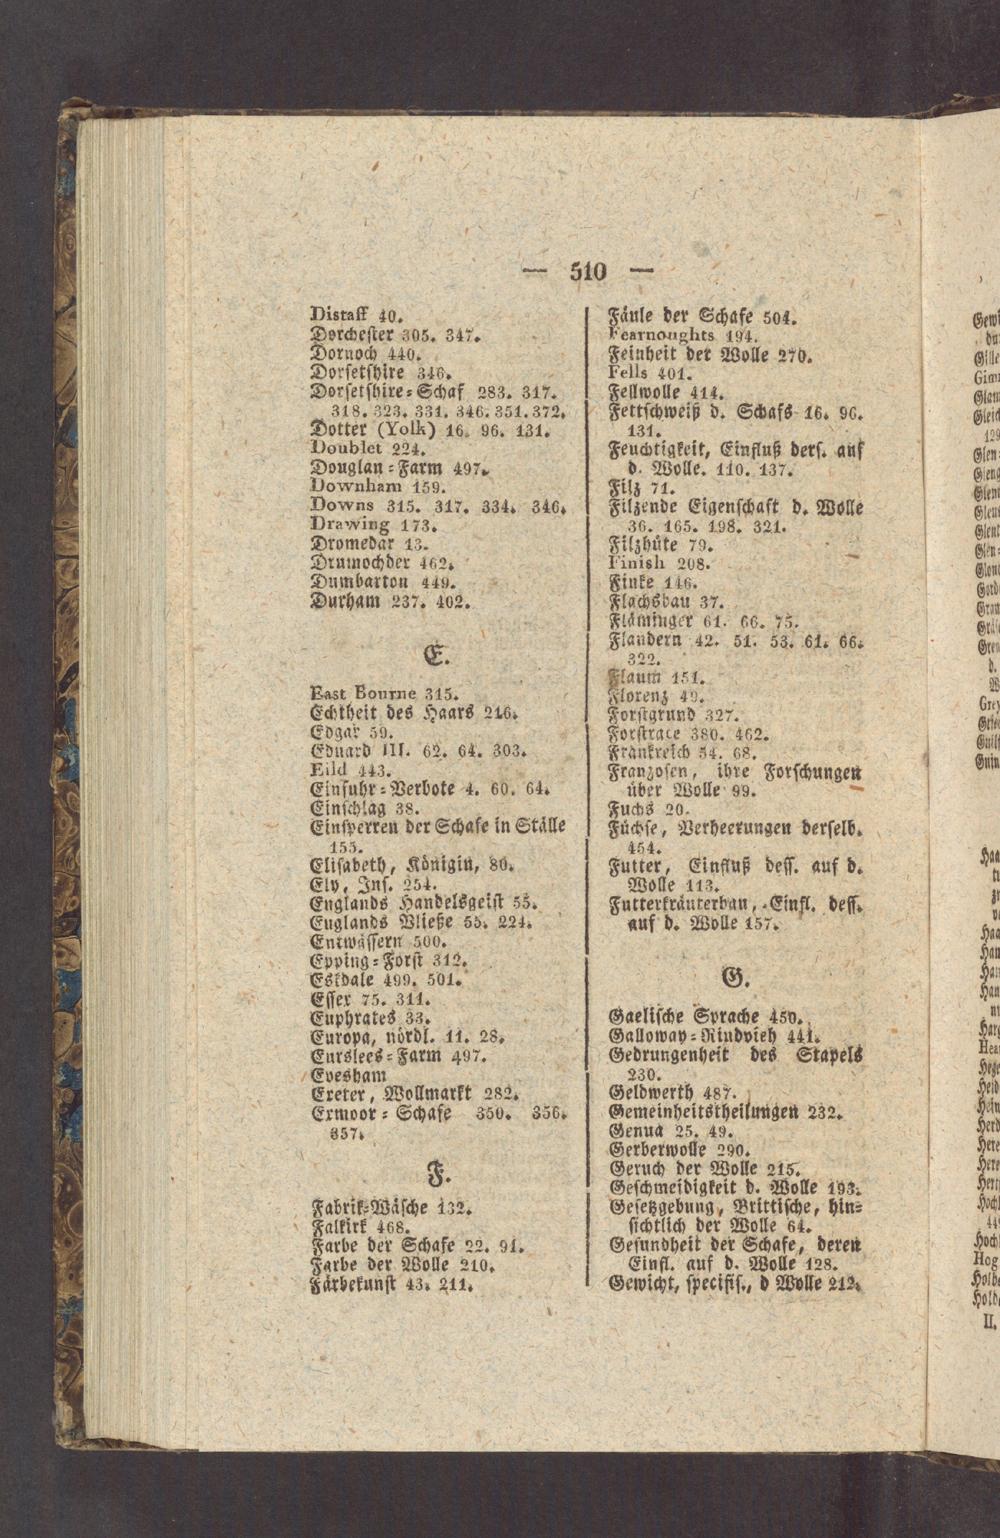 — 510 —
Distaff 40.
Dorchester 305. 347.
Dornoch 440.
Dorsetshire 346.
Dorsetshire=Schaf 283. 317.
318. 323. 331. 346. 351. 372.
Dotter (Yolk) 16. 96. 131.
Doublet 224.
Douglan=Farm 497.
Downham 159.
Downs 315. 317. 334. 346.
Drawing 173.
Dromedar 13.
Drumochder 462.
Dumbarton 449.
Durham 237. 402.
E.
East Bourne 315.
Echtheit des Haars 216.
Edgar 59.
Eduard III. 62. 64. 303.
Eild 443.
Einfuhr=Verbote 4. 60. 64.
Einschlag 38.
Einsperren der Schafe in Ställe
155.
Elisabeth, Königin, 80.
Ely, Ins. 254.
Englands Handelsgeist 55.
Englands Vließe 55. 224.
Entwässern 500.
Epping=Forst 312.
Eskdale 499. 501.
Essex 75. 311.
Euphrates 33.
Europa, nördl. 11. 28.
Eurslees=Farm 497.
Evesham
Exeter, Wollmarkt 282.
Exmoor=Schafe 350. 356.
357.
F.
Fabrik=Wäsche 132.
Falkirk 468.
Farbe der Schafe 22. 91.
Farbe der Wolle 210.
Färbekunst 43. 211.
Fäule der Schafe 504.
Fearnoughts 194.
Feinheit der Wolle 270.
Fells 401.
Fellwolle 414.
Fettschweiß d. Schafs 16. 96.
131.
Feuchtigkeit, Einfluß ders. auf
d. Wolle. 110. 137.
Filz 71.
Filzende Eigenschaft d. Wolle
36. 165. 198. 321.
Filzhüte 79.
Finish 208.
Finke 146.
Flachsbau 37.
Fläminger 61. 66. 75.
Flandern 42. 51. 53. 61. 66.
322.
Flaum 151.
Florenz 49.
Forstgrund 327.
Forstrace 380. 462.
Frankreich 54. 68.
Franzosen, ihre Forschungen
über Wolle 99.
Fuchs 20.
Füchse, Verheerungen derselb.
454.
Futter, Einfluß dess. auf d.
Wolle 113.
Futterkräuterbau, Einfl. dess.
auf d. Wolle 157.
G.
Gaelische Sprache 450.
Galloway=Rindvieh 441.
Gedrungenheit des Stapels
230.
Geldwerth 487.
Gemeinheitstheilungen 232.
Genua 25. 49.
Gerberwolle 290.
Geruch der Wolle 215.
Geschmeidigkeit d. Wolle 193.
Gesetzgebung, Brittische, hin=
sichtlich der Wolle 64.
Gesundheit der Schafe, deren
Einfl. auf d. Wolle 128.
Gewicht, specifis., d Wolle 212.